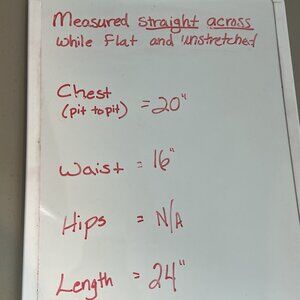 Measured straight across
while flat and unstretched
Chest
(pit to pit) = 20"
Waist = 16"
Hips = N/A
Length = 24"